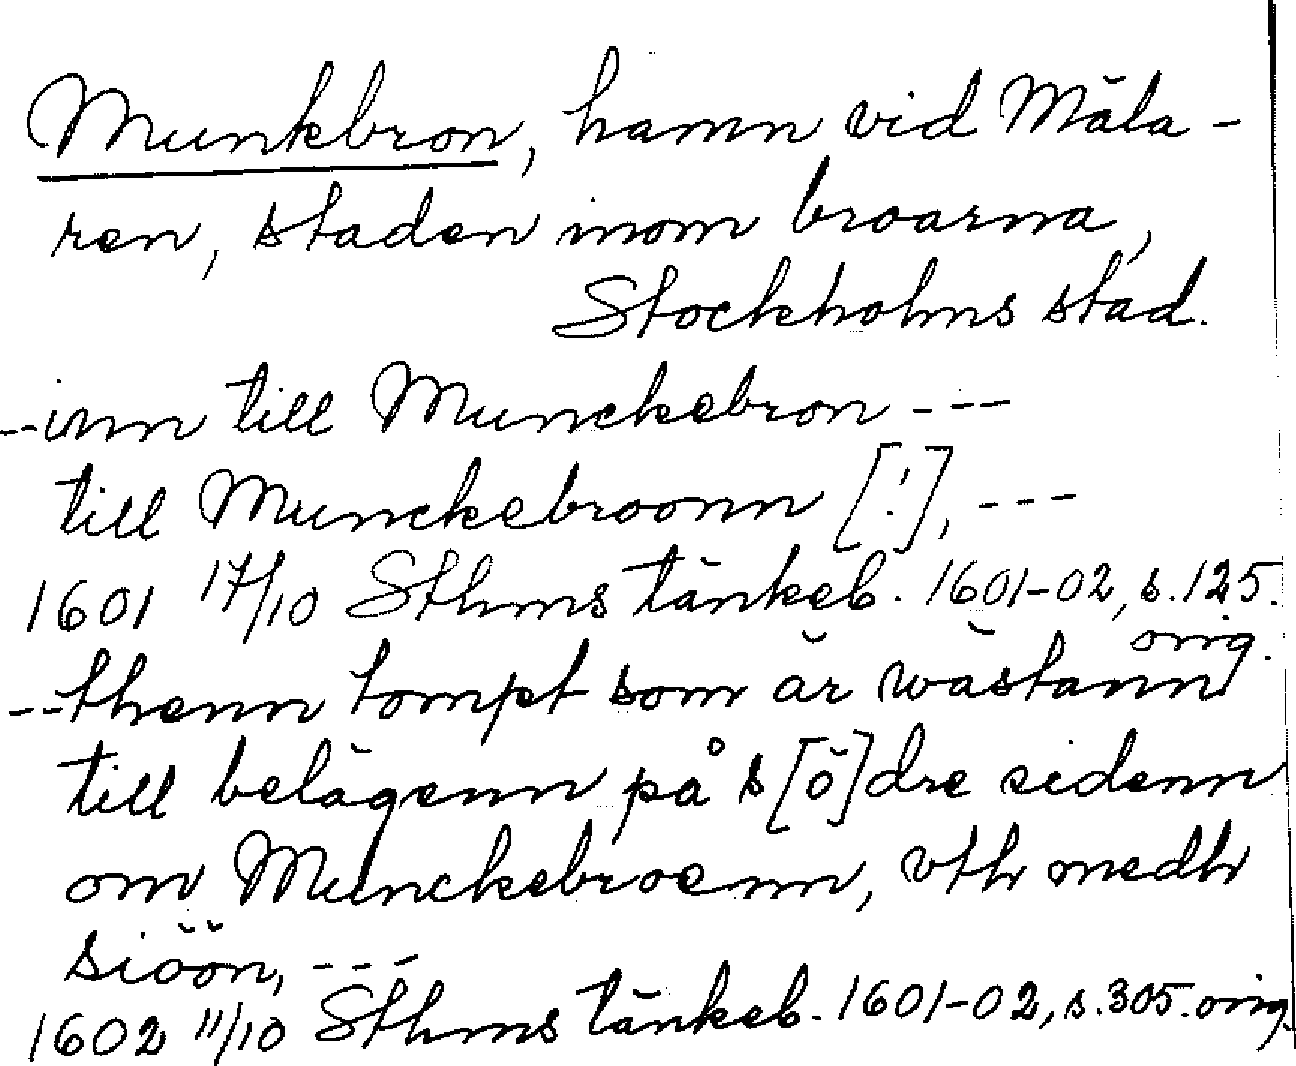 Munkbron, hamn vid Mäla-
ren, staden inom broarna,
Stockholms stad.
--inn till Munckebron ---
till Munckebroonn [!], ---
1601 17/10 Sthms tänkeb. 1601-02, s. 125.
orig.
--thenn tompt som är wästann
till belägenn på s[ö]dre sidenn
om Munckebroenn, vth medh
siöön, ---
1602 11/10 Sthms tänkeb. 1601-02, s. 305. orig.